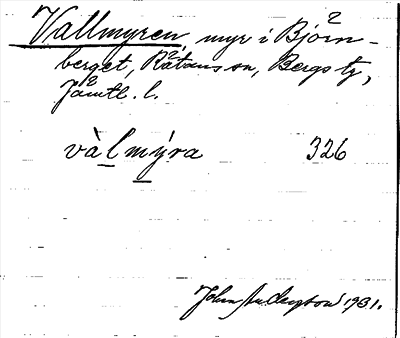 Vallmyren, myr i Björn-
berget, Rätans sn, Bergs tg,
Jämtl. l.
vàlmýra 326
John 1931.